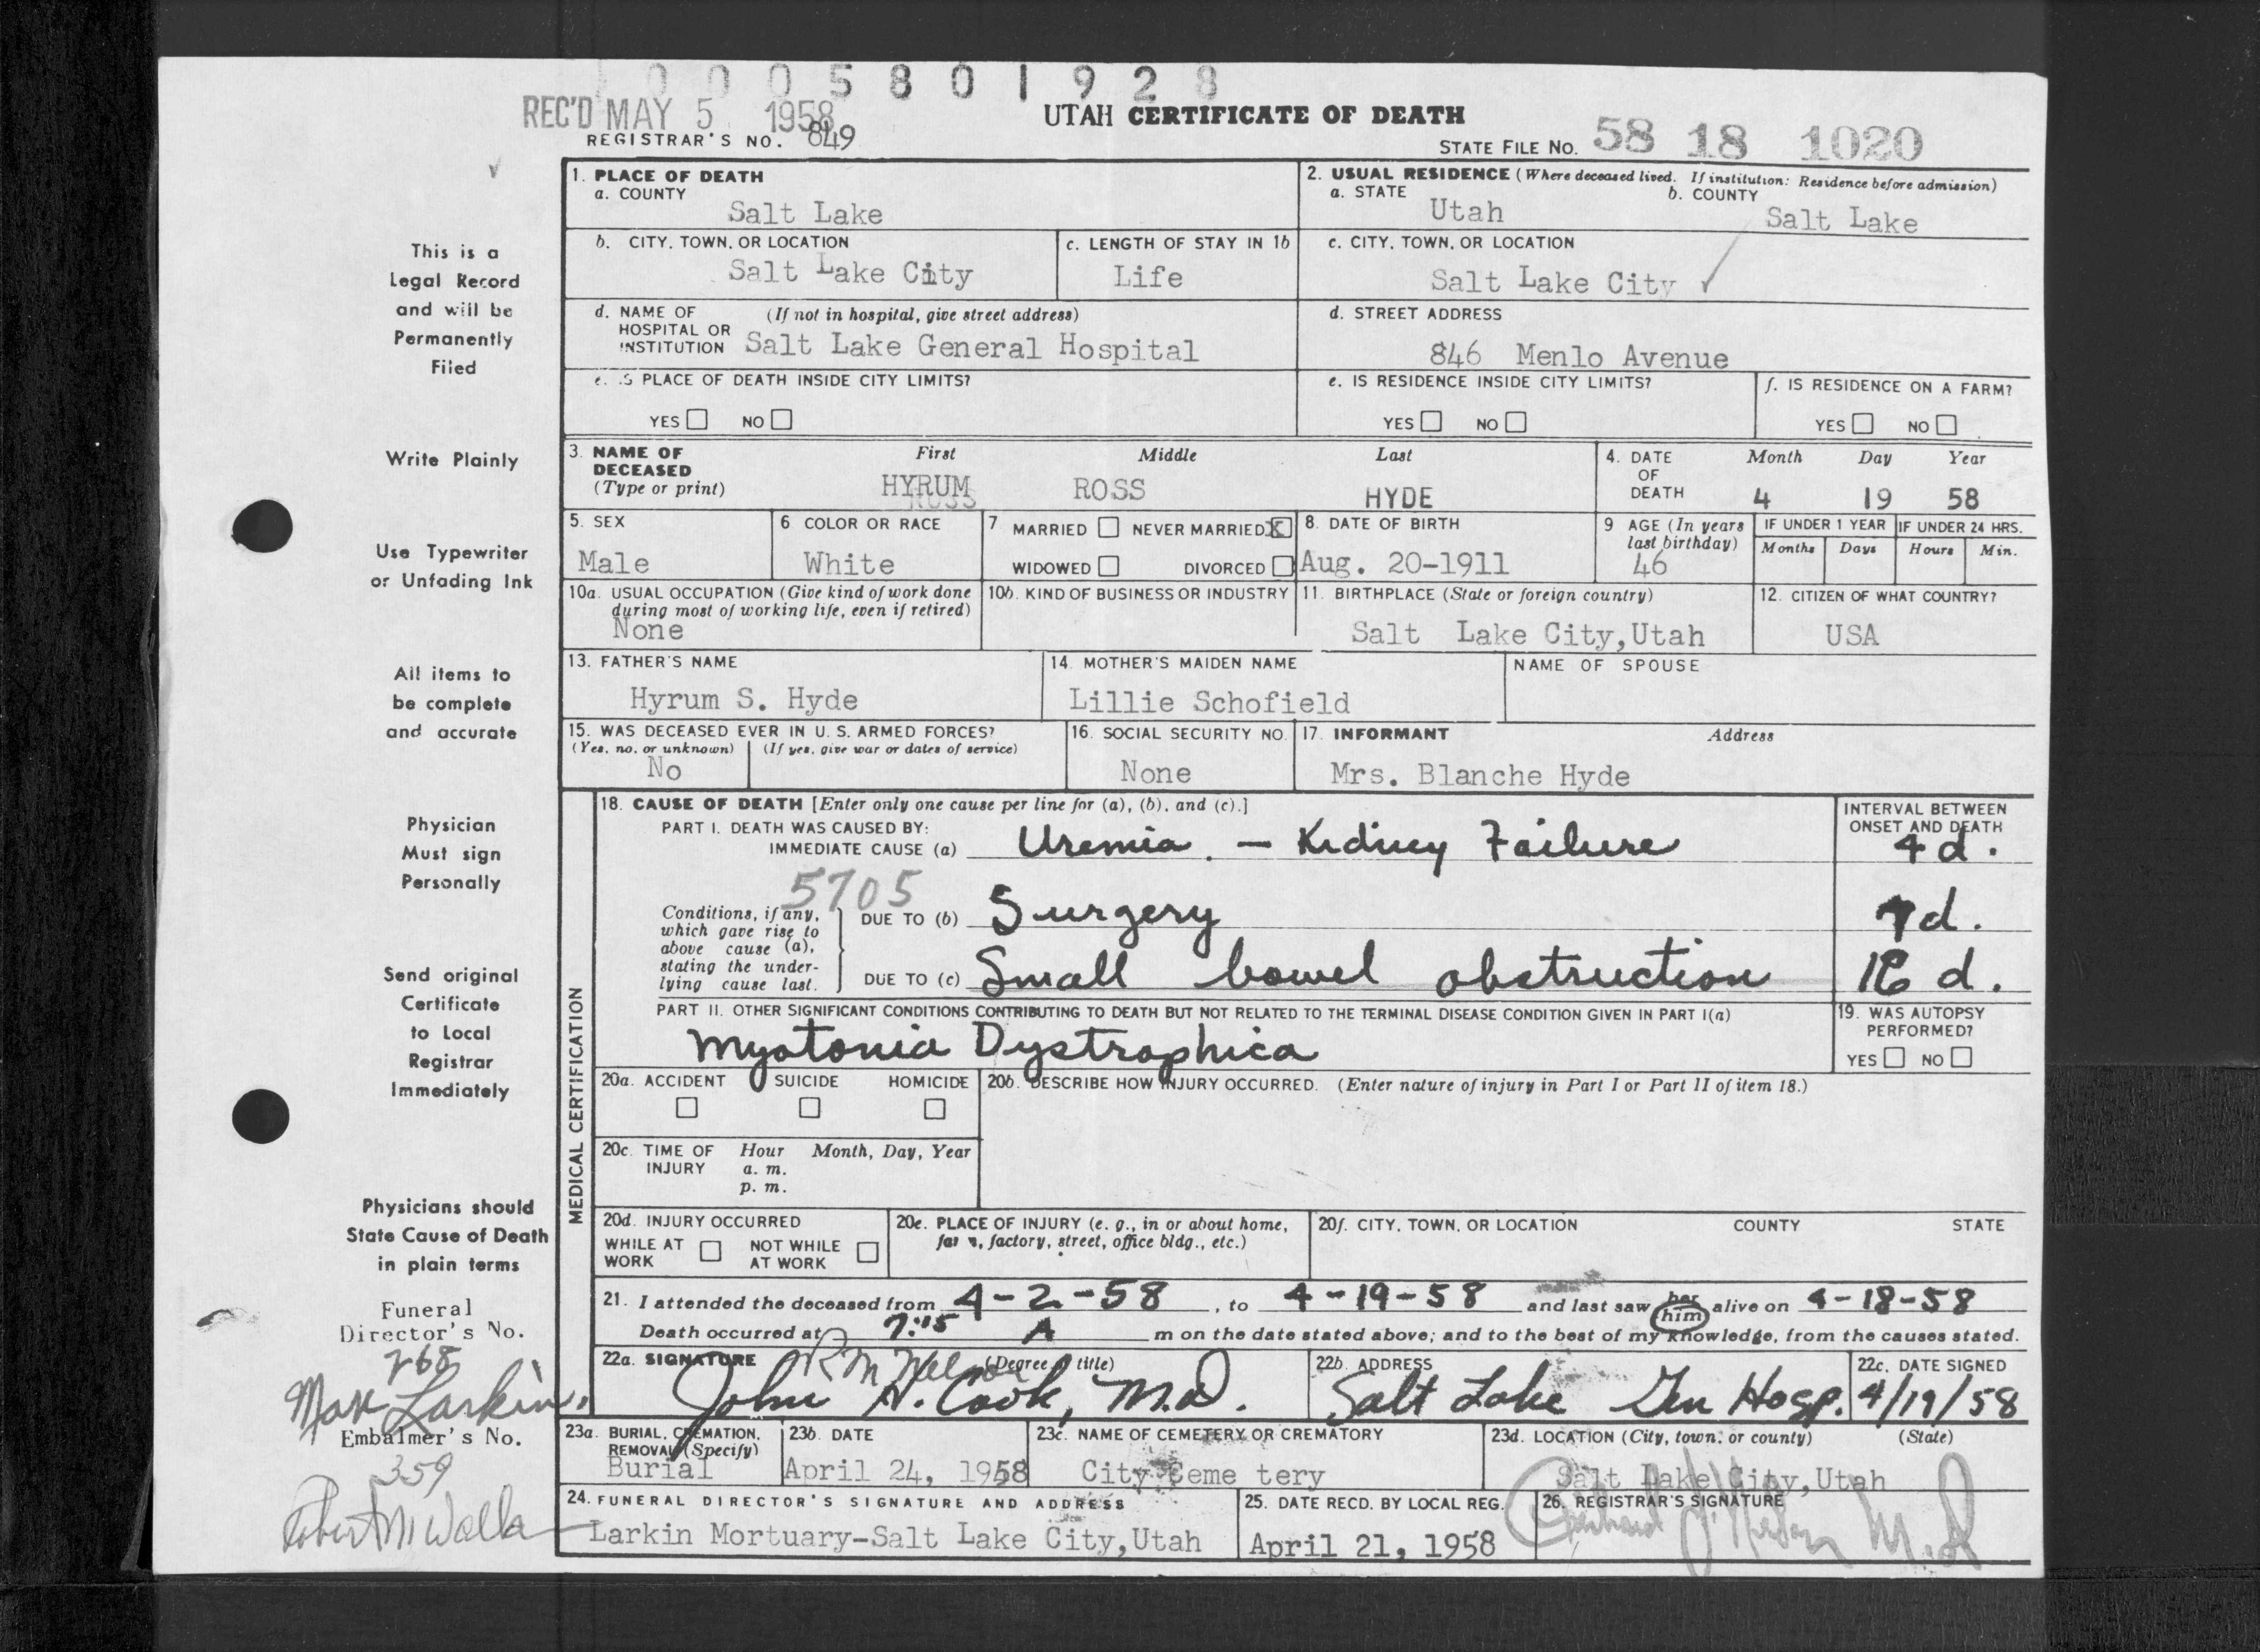 0005801928
REC'D MAY 5 1958
UTAH CERTIFICATE OF DEATH
REGISTRAR'S NO. 849
STATE FILE NO. 58 18 1020
1. PLACE OF DEATH
a. COUNTY
Salt Lake
2. USUAL RESIDENCE (Where deceased lived. If institution: Residence before admission)
a. STATE
b. COUNTY
Utah
Salt Lake
This is a
Legal Record
and will be
Permanently
Filed
b. CITY, TOWN, OR LOCATION
Salt Lake City
c. LENGTH OF STAY IN 1b
Life
c. CITY, TOWN, OR LOCATION
Salt Lake City
d. NAME OF (If not in hospital, give street address)
HOSPITAL OR
INSTITUTION Salt Lake General Hospital
d. STREET ADDRESS
846 Menlo Avenue
e. IS PLACE OF DEATH INSIDE CITY LIMITS?
YES NO
e. IS RESIDENCE INSIDE CITY LIMITS?
YES NO
f. IS RESIDENCE ON A FARM?
YES NO
Write Plainly
3. NAME OF
DECEASED
(Type or print)
First Middle Last
HYRUM ROSS HYDE
4. DATE
OF
DEATH
Month Day Year
4 19 58
Use Typewriter
or Unfading Ink
5. SEX
Male
6 COLOR OR RACE
White
7 MARRIED NEVER MARRIED X
WIDOWED DIVORCED
8. DATE OF BIRTH
Aug. 20-1911
9 AGE (In years
last birthday)
46
IF UNDER 1 YEAR IF UNDER 24 HRS.
Months Days Hours Min.
10a. USUAL OCCUPATION (Give kind of work done
during most of working life, even if retired)
None
10b. KIND OF BUSINESS OR INDUSTRY
11. BIRTHPLACE (State or foreign country)
Salt Lake City,Utah
12. CITIZEN OF WHAT COUNTRY?
USA
All items to
be complete
and accurate
13. FATHER'S NAME
Hyrum S. Hyde
14. MOTHER'S MAIDEN NAME
Lillie Schofield
NAME OF SPOUSE
15. WAS DECEASED EVER IN U. S. ARMED FORCES?
(Yes, no, or unknown) (If yes, give war or dates of service)
No
16. SOCIAL SECURITY NO.
None
17. INFORMANT Address
Mrs. Blanche Hyde
Physician
Must sign
Personally
MEDICAL CERTIFICATION
18. CAUSE OF DEATH [Enter only one cause per line for (a), (b), and (c).]
PART I. DEATH WAS CAUSED BY:
IMMEDIATE CAUSE (a) Uremia. - Kidney Failure
INTERVAL BETWEEN
ONSET AND DEATH
4 d.
5705
Conditions, if any,
which gave rise to
above cause (a),
stating the under-
lying cause last.
DUE TO (b) Surgery
d.
DUE TO (c) Small bowel obstruction
d.
Send original
Certificate
to Local
Registrar
Immediately
PART II. OTHER SIGNIFICANT CONDITIONS CONTRIBUTING TO DEATH BUT NOT RELATED TO THE TERMINAL DISEASE CONDITION GIVEN IN PART I(a)
Myotonia Dystrophica
19. WAS AUTOPSY
PERFORMED?
YES NO
20a. ACCIDENT SUICIDE HOMICIDE
20b. DESCRIBE HOW INJURY OCCURRED. (Enter nature of injury in Part I or Part II of item 18.)
20c. TIME OF
INJURY
Hour Month, Day, Year
a. m.
p. m.
Physicians should
State Cause of Death
in plain terms
20d. INJURY OCCURRED
WHILE AT
WORK
NOT WHILE
AT WORK
20e. PLACE OF INJURY (e. g., in or about home,
farm, factory, street, office bldg., etc.)
20f. CITY, TOWN, OR LOCATION COUNTY STATE
21. I attended the deceased from 4-2-58, to 4-19-58 and last saw her him alive on 4-18-58
Death occurred at 7:15 A m on the date stated above; and to the best of my knowledge, from the causes stated.
22a. SIGNATURE (Degree title)
John H. Cook, M.D.
22b. ADDRESS
Salt Lake Gen Hosp.
22c. DATE SIGNED
4/19/58
Funeral
Director's No.
268
Max Larkin
Embalmer's No.
359
23a. BURIAL, CREMATION,
REMOVAL (Specify)
Burial
23b. DATE
April 24, 1958
23c. NAME OF CEMETERY OR CREMATORY
City Ceme tery
23d. LOCATION (City, town, or county) (State)
Salt Lake City,Utah
24. FUNERAL DIRECTOR'S SIGNATURE AND ADDRESS
Larkin Mortuary-Salt Lake City,Utah
25. DATE RECD. BY LOCAL REG.
April 21, 1958
26. REGISTRAR'S SIGNATURE
M.D